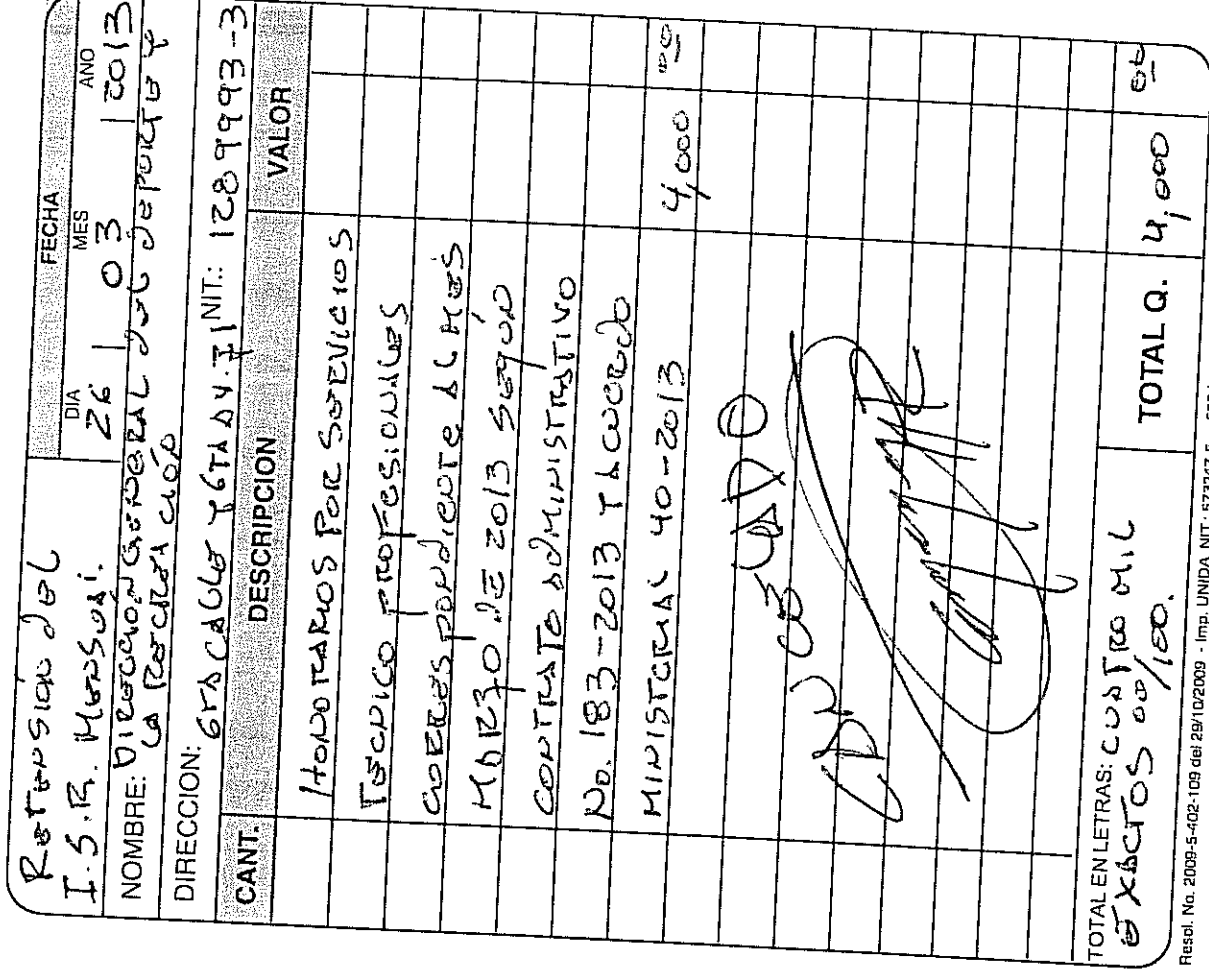 Retensión del
I.S.R. Mensual.
FECHA
DIA MES AÑO
26 03 2013
NOMBRE: Dirección General del Deporte y
la Recreación
DIRECCION: 6TA CALLE Y 6TA AV. NIT.: 1289993-3
CANT. DESCRIPCION VALOR
Honorarios por Servicios
Tecnico Profesionales
Correspondiente al Mes
Marzo de 2013 según
Contrato Administrativo
No. 183-2013 y Acuerdo
Ministerial 40-2013 4,000 00
CANCELADO
TOTAL EN LETRAS: Cuatro Mil
Exactos 00/100.
TOTAL Q. 4,000 00
Resol. No. 2009-5-402-109 del 29/10/2009 - Imp. UNIDA NIT.: